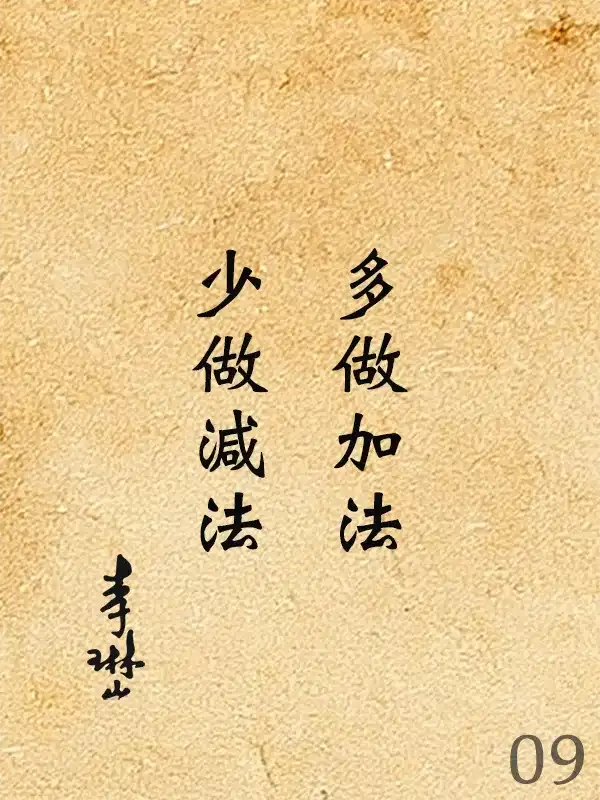 多做加法
少做减法
李琳山
09